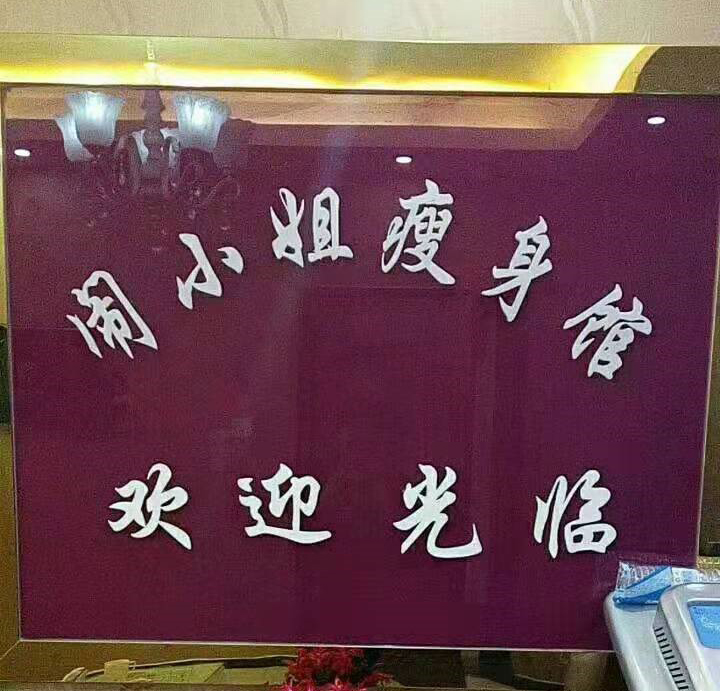 闹小姐瘦身馆
欢迎光临